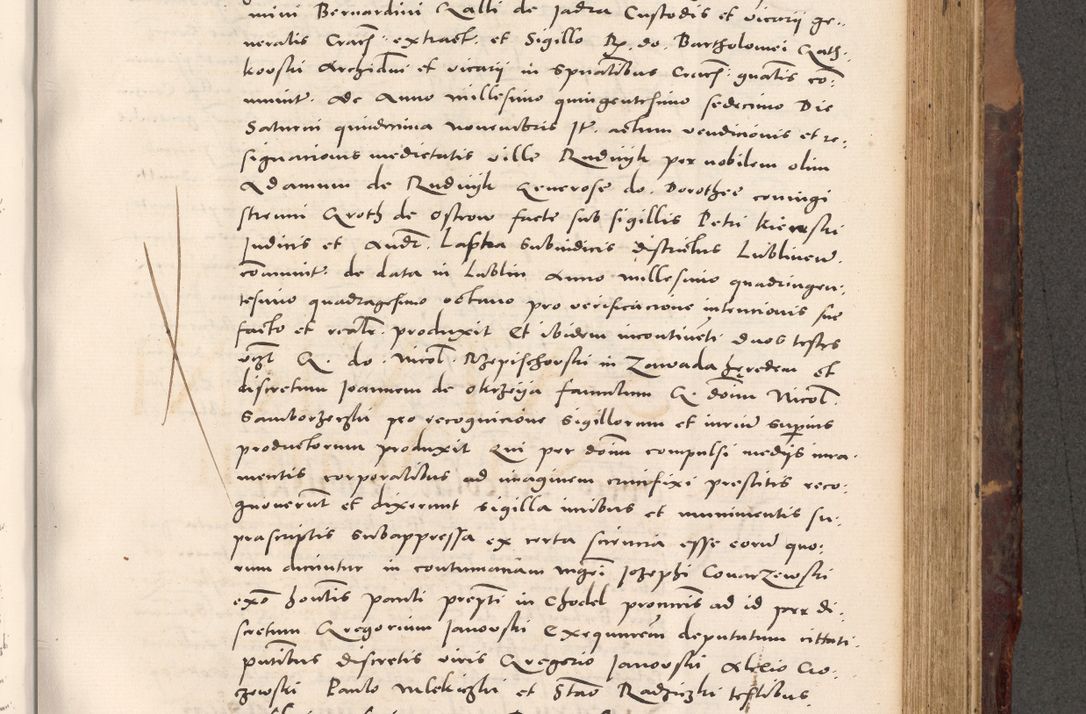 mini Bernardini Galli de Jadra Custodis et vicarii ge-
neralis Crac: extract. et Sigillo R. do. Bartholomei Gath-
kovski Archidni et vicarii in spualibus Crac: gnalis co-
muniit. de Anno millesimo quingentesimo sedecimo Die
Saturni quindecima novembris It. actum vendicionis et re-
signacionis medietatis ville Rudnyk per nobilem olim
Adamum de Rudnyk Generose do. Dorothee coniugi
strenui Groth de Ostrow facte sub sigillis Petri kierski
Judicis et Andr. Laphta Subiudicis districtus Lublinen.
communit. de data in Lublin Anno millesimo quadringen-
tesimo quadragesimo octavo pro verificacione intencionis sue
facto et realr. produxit Et ibidem incontineti duos testes
vczt G. do. Nicol. Rzepischovski in Zawada heredem et
discretum Joannem de Okrzeya famulum G. domi Nicol.
Samborzeczki pro recognicione sigillorum et iuriu supius
productorum produxit Qui per domi compulsi medys iura-
mentis corporalibus ad imaginem crucifixi prestitis reco-
gnoverut et dixerunt sigilla iuribus et munimentis su-
prascriptis subappressa ex certa sciencia esse eoru quo-
rum dicuntur in contumaciam mgri Jozephi Covarzewski
exo hontis pauli prepti in Chodel procuris ad id per di-
scretum Gregorium Janovski Exequucem deputatum cittati
putibus discretis viris Gregorio Janovski Alexio Cio-
zowski Paulo Mlekiczki et Stao Radziczki testibus